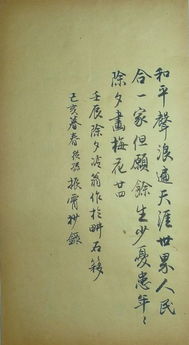 和平聲浪遍天涯世界人民
合一家但願餘生少憂患年〻
除夕畫梅花廿四
壬辰除夕冷翁作於畊石簃
己亥暮春 振霄抄錄